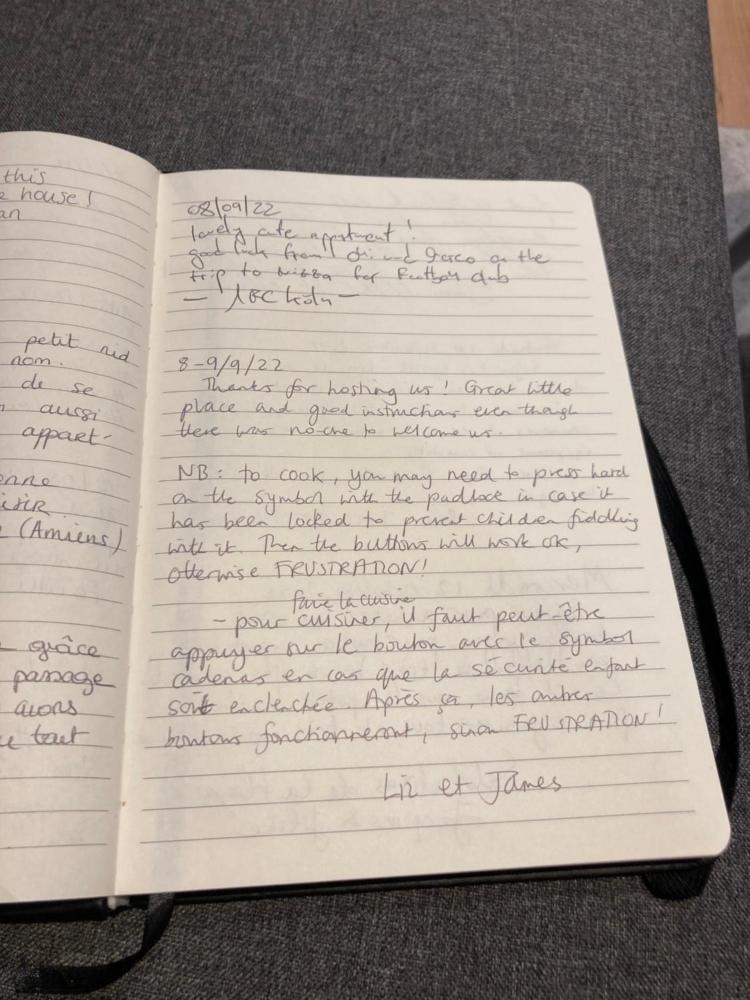 this
house!
an
petit nid
nom.
de se
aussi
appart-
onne
(Amiens)
grâce
passage
avons
tout
08/09/22
lovely cute appartment!
good luck from and on the
trip to for club
8-9/9/22
Thanks for hosting us! Great little
place and good instructions even though
there was no-one to welcome us.
NB: to cook, you may need to press hard
on the symbol with the padlock in case it
has been locked to prevent children fiddling
with it. Then the buttons will work ok,
otherwise FRUSTRATION!
faire la cuisine
- pour cuisiner, il faut peut-être
appuyer sur le bouton avec le symbol
cadenas en cas que la sécurité enfant
soit enclenchée. Après ça, les autres
boutons fonctionneront, sinon FRUSTRATION!
Liz et James